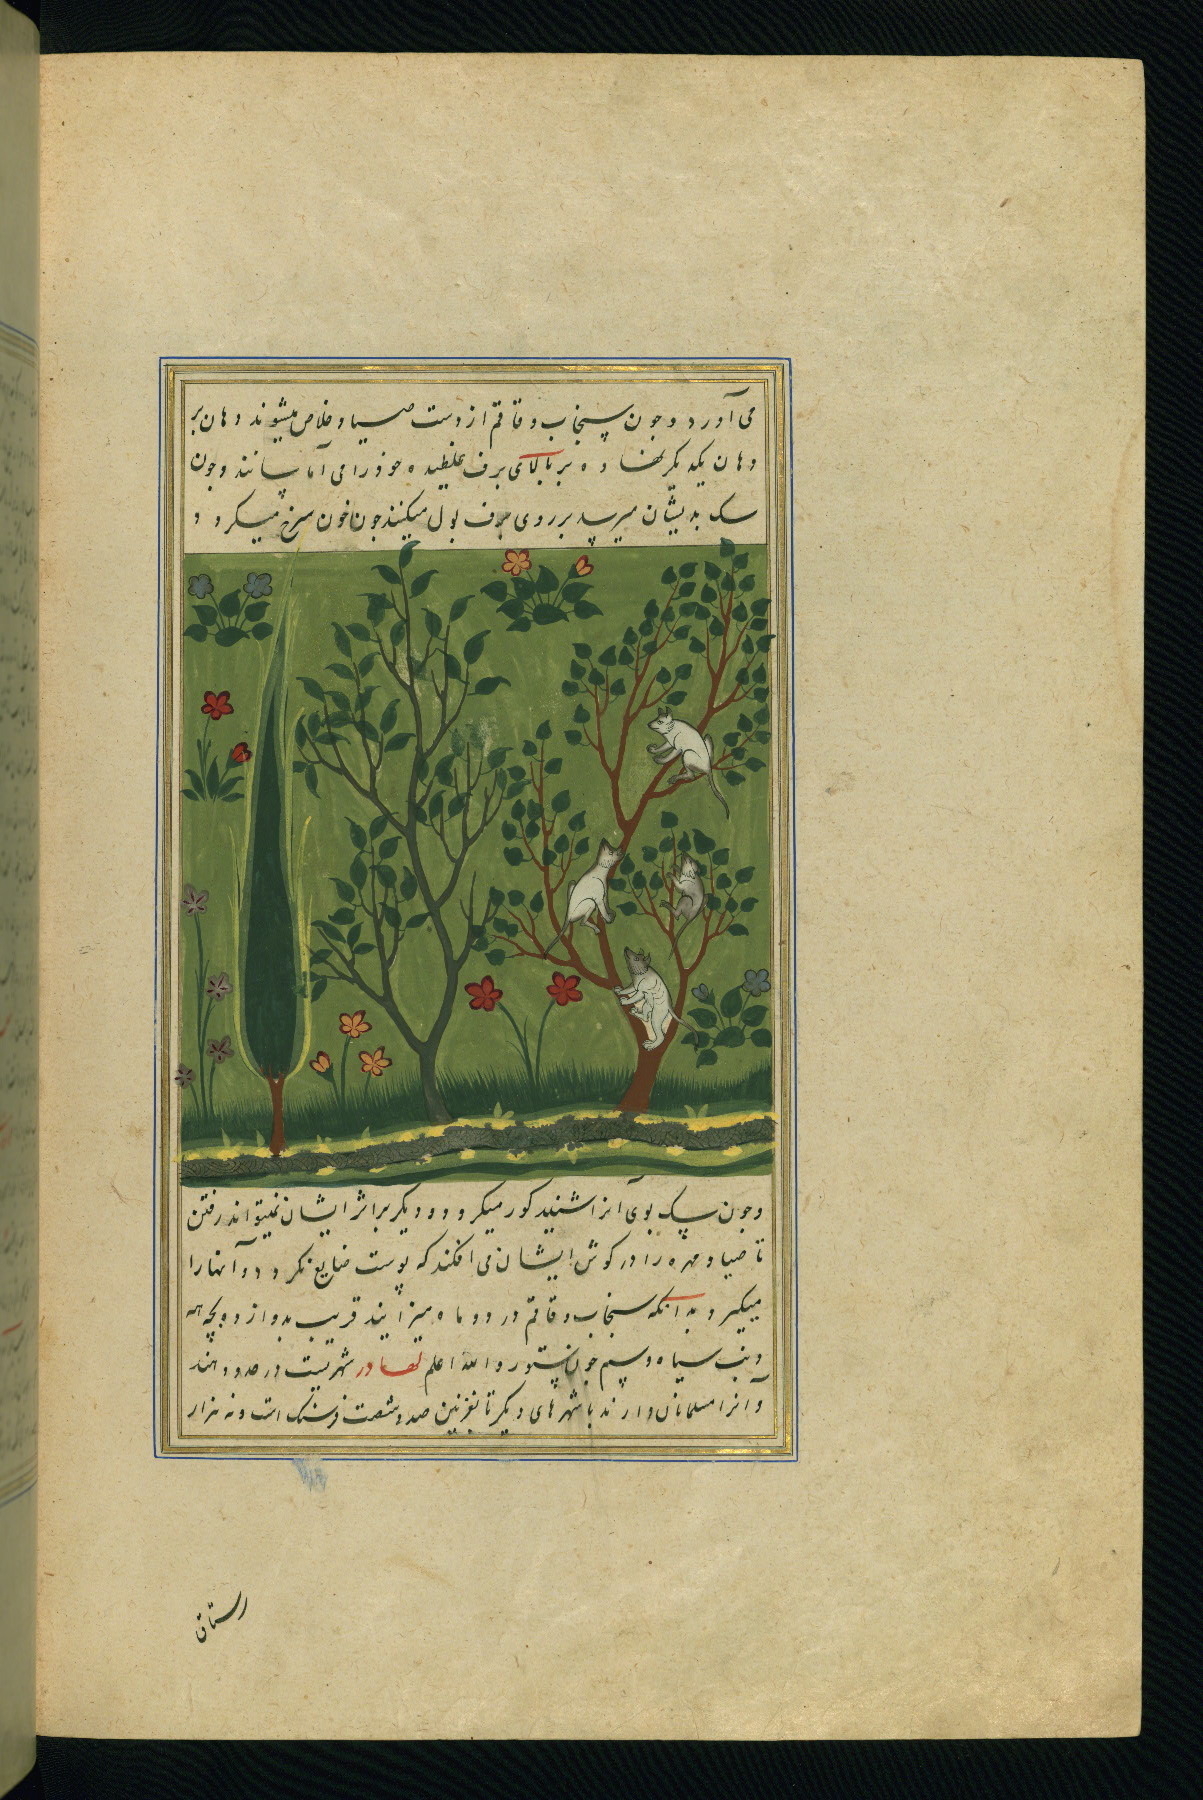 می آورد و چون سنجاب و قاقم از دست صیاد خلاص میشوند دهان بر
دهان یکدیگر نهاده بر بالای برف غلطیده خود را می آماسانند و چون
سک بدیشان میرسد بر روی برف بول میکنند چون خون سرخ میکردد
و چون سک بوی آنرا شنید کور میکردد و دیگر بر اثر ایشان نمیتواند رفتن
تا صیاد مهره را در کوش ایشان می افکند که پوست ضایع نکردد و آنها را
میکیرد بدانکه سنجاب و قاقم در دو ماه میزایند قریب بدوازده بچه همه
دنب سیاه و سم چون ستور والله اعلم لهادر شهریست در حدود هند
و آنرا مسلمانان دارند با شهرهای دیگر تا بغزنین صد و شصت فرسنک است و نه هزار
رستاق